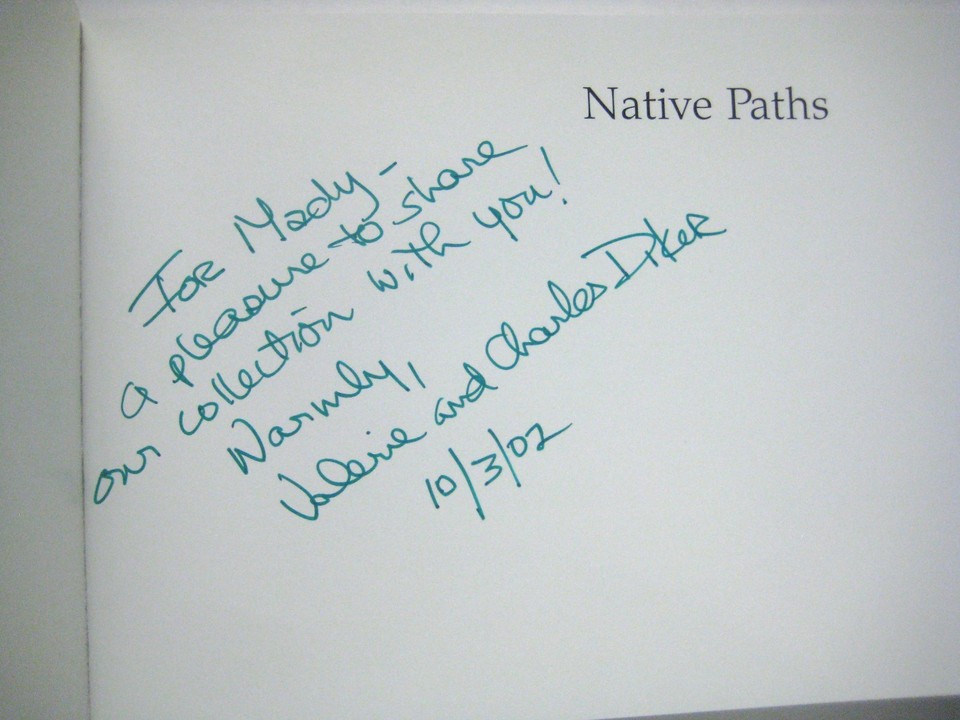 Native Paths
For Mady-
a pleasure to share
our collection with you!
Warmly,
Valerie and Charles Diker
10/3/02